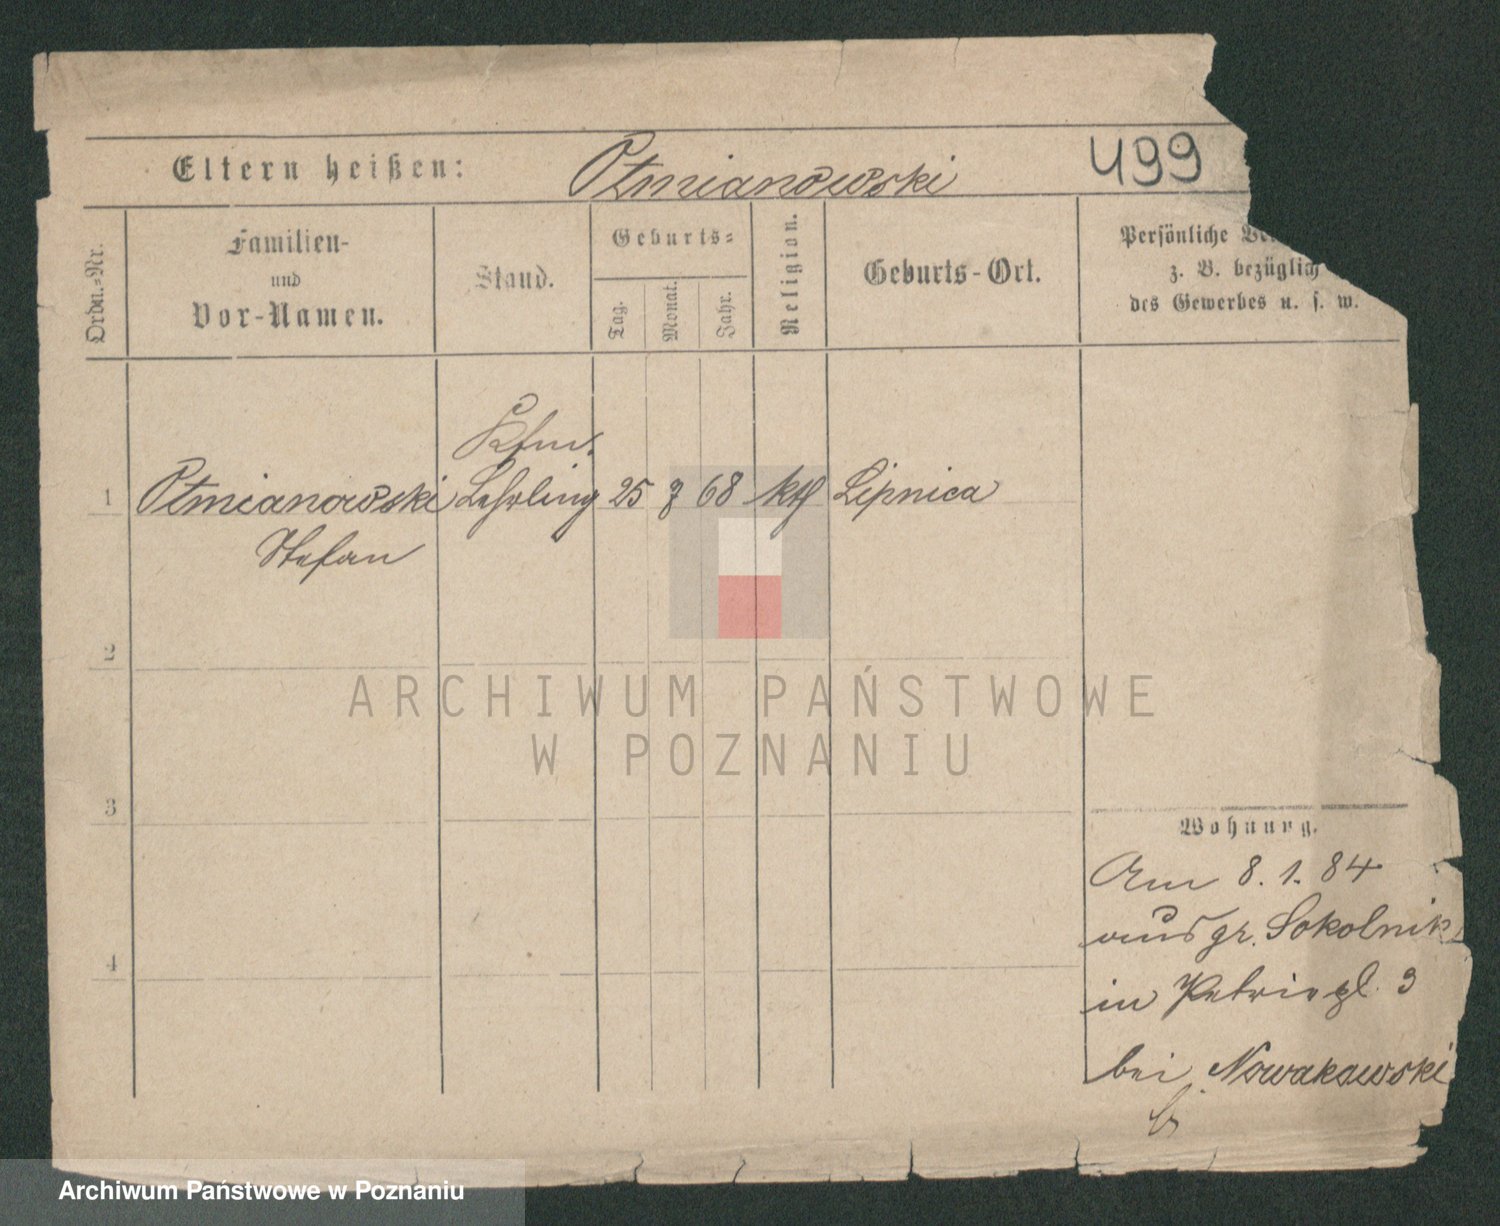 Eltern heißen: Otmianowski 499
Ordn.-Nr.
Familien-
und
Vor-Namen.
Stand.
Geburts-
Tag.
Monat.
Jahr.
Religion.
Geburts-Ort.
Persönliche
z. B. bezüglich
des Gewerbes u. s. w.
Kfm.
1 Otmianowski Lehrling 25 8 68 kth Lipnica
Stefan
2
3
4
Wohnung.
Am 8. 1. 84
aus gr. Sokolnik
in Petriepl. 3
bei Nowakowski
ARCHIWUM PAŃSTWOWE
W POZNANIU
Archiwum Państwowe w Poznaniu